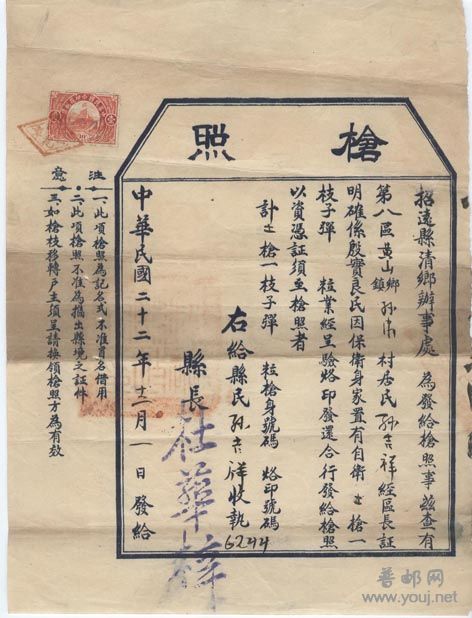 槍照
招遠縣清鄉辦事處 為發給槍照事茲查有
第八區黄山鄉鎮孫 村居民孫吉祥經區長証
明確係殷實良民因保衛身家置有自衛士槍一
枝子彈 粒業經呈驗烙印發還合行發給槍照
以資憑証須至槍照者
計士槍一枝子彈 粒槍身號碼 烙印號碼
6244
右給縣民孫吉祥收執
縣長
中華民國二十二年十二月一日發給
注意
一、此項槍照為記名式不准冒名借用
二、此項槍照不准為攜出縣境之証件
三、如槍枝移轉户主須呈請換領槍照方為有效
普邮网
www.youj.net